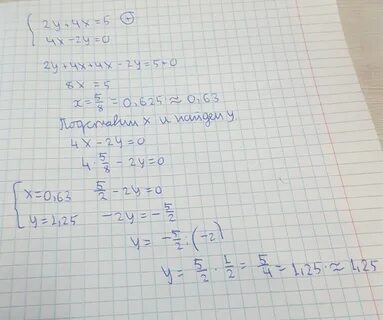 { 2y+4x=5 (+)
4x-2y=0
2y+4x+4x-2y=5+0
8x=5
x=5/8=0,625≈0,63
Подставим x и найдем y
4x-2y=0
4·5/8-2y=0
{ x=0,63 5/2-2y=0
y=1,25 -2y=-5/2
y=-5/2:(-2)
y=5/2·1/2=5/4=1,25≈1,25